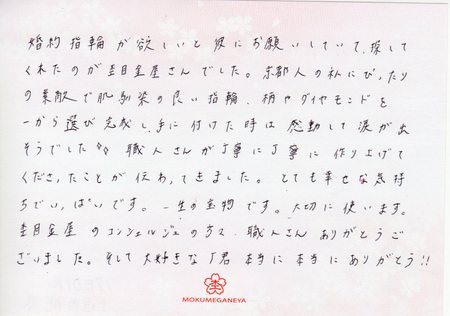 婚約指輪が欲しいと彼にお願いしていて、探して
くれたのが杢目金屋さんでした。京都人の私にぴったり
の素敵で肌馴染の良い指輪、柄やダイヤモンドを
一から選び完成し、手に付けた時は感動して涙が出
そうでした 職人さんが丁寧に丁寧に作り上げて
くださったことが伝わってきました。とても幸せな気持
ちでいっぱいです。一生の宝物です。大切に使います。
杢目金屋のコンシェルジュの方々、職人さんありがとうご
ざいました。そして大好きな 君 本当に本当にありがとう!!
MOKUMEGANEYA